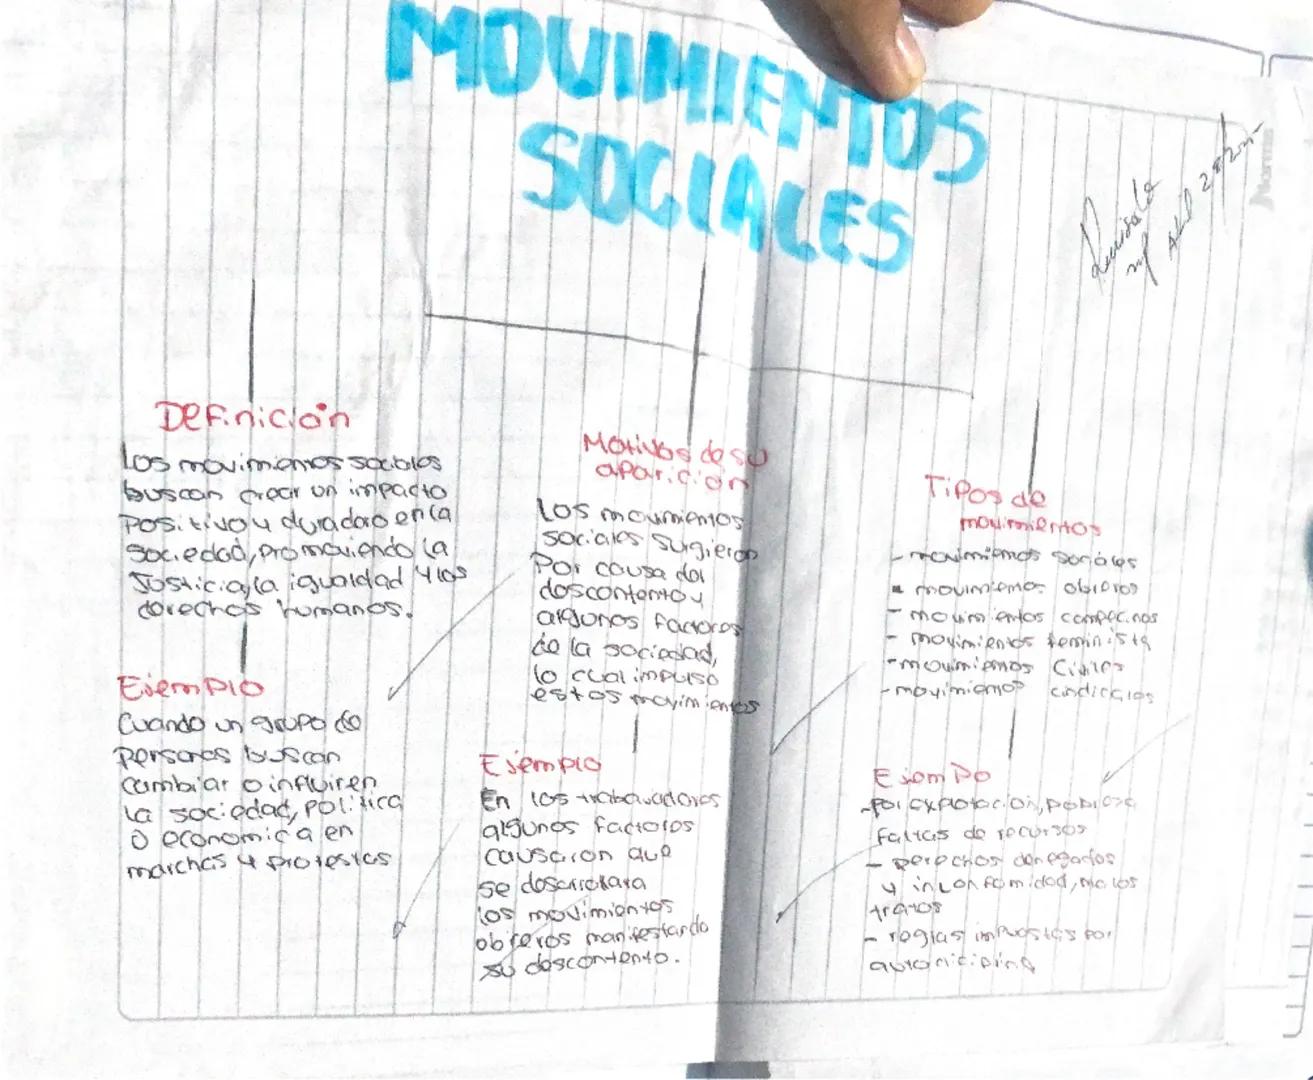 MOVIMIENTOS
SOCIALES
Abril 28/2025
Norma
Definición
Los movimientos sociales
buscan crear un impacto
positivo y duradao en la
sociedad, promoviendo la
Justicia, la igualdad y los
derechos humanos.
Ejemplo
Cuando un grupo de
personas buscan
cambiar o influir en
la sociedad, politica
o economica en
marchas y protestas
Motivos de su
aparición
Los movimientos
sociales sugieron
Por causa del
descontento y
algunos factores
de la sociedad,
lo cual impulso
estos movimientos
Ejemplo
En los trabajadores
algunos factores
causaron que
se desarrollara
los movimientos
obreros manifestando
su descontento.
Tipos de
movimientos
- movimientos sociales
- movimientos obreros
- movimientos campecinos
- movimientos feminista
- movimientos Civiles
- movimientos cindicales
Ejemplo
- Por explotacion, pobreza
faltas de recursos
- Derechos denegados
y inconformidad, malos
tratos
- reglas impuestas por